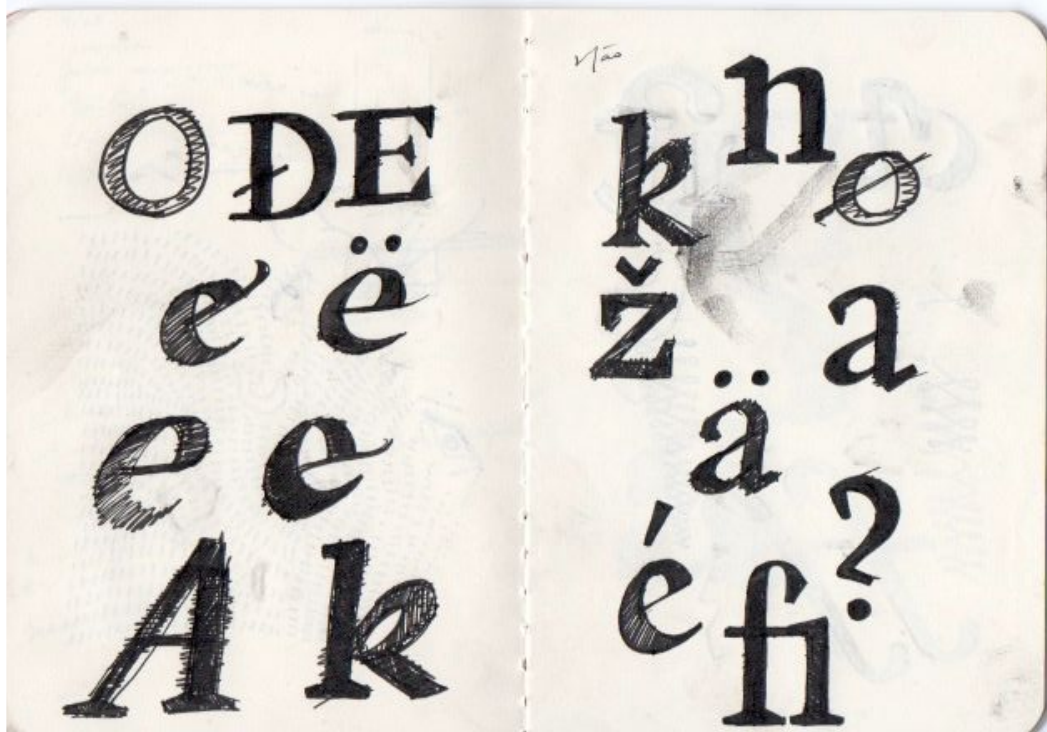 O Đ E
e ë
e e
A k
Não
n
k ø
ž a
ä
é ?
fi